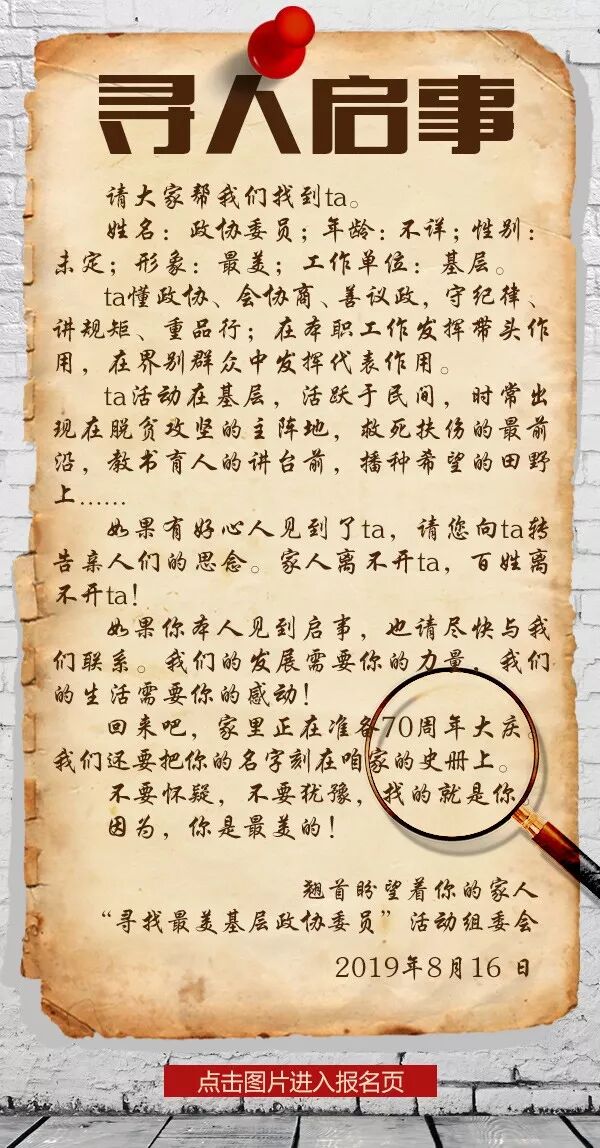 寻人启事
请大家帮我们找到ta。
姓名：政协委员；年龄：不详；性别：
未定；形象：最美；工作单位：基层。
ta懂政协、会协商、善议政，守纪律、
讲规矩、重品行；在本职工作发挥带头作
用，在界别群众中发挥代表作用。
ta活动在基层，活跃于民间，时常出
现在脱贫攻坚的主阵地，救死扶伤的最前
沿，教书育人的讲台前，播种希望的田野
上……
如果有好心人见到了ta，请您向ta转
告亲人们的思念。家人离不开ta，百姓离
不开ta！
如果你本人见到启事，也请尽快与我
们联系。我们的发展需要你的力量，我们
的生活需要你的感动！
回来吧，家里正在准备70周年大庆。
我们还要把你的名字刻在咱家的史册上。
不要怀疑，不要犹豫，找的就是你
因为，你是最美的！
翘首盼望着你的家人
“寻找最美基层政协委员”活动组委会
2019年8月16日
点击图片进入报名页